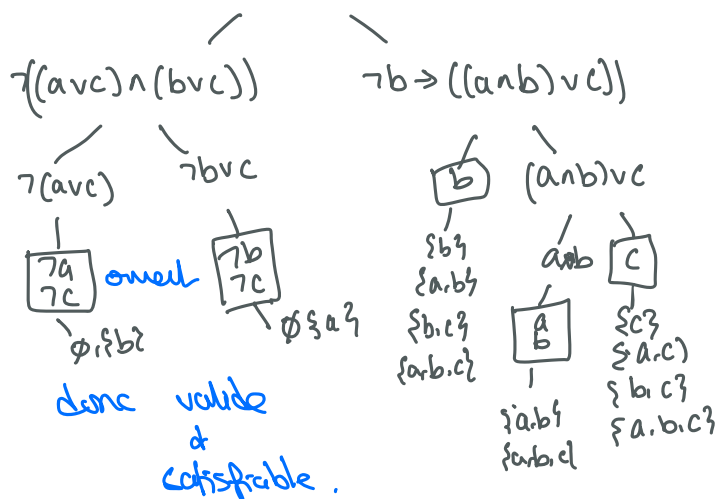 ¬((a∨c)∧(b∨c)) ¬b→((a∧b)∨c))
¬(a∨c) ¬b∨c b (a∧b)∨c
¬a
¬c
ouvert
¬b
¬c
∅,{b}
∅{a}
{b}
{a,b}
{b,c}
{a,b,c}
a∧b
c
a
b
{a,b}
{a,b,c}
{c}
{a,c}
{b,c}
{a,b,c}
donc valide
&
satisfiable.